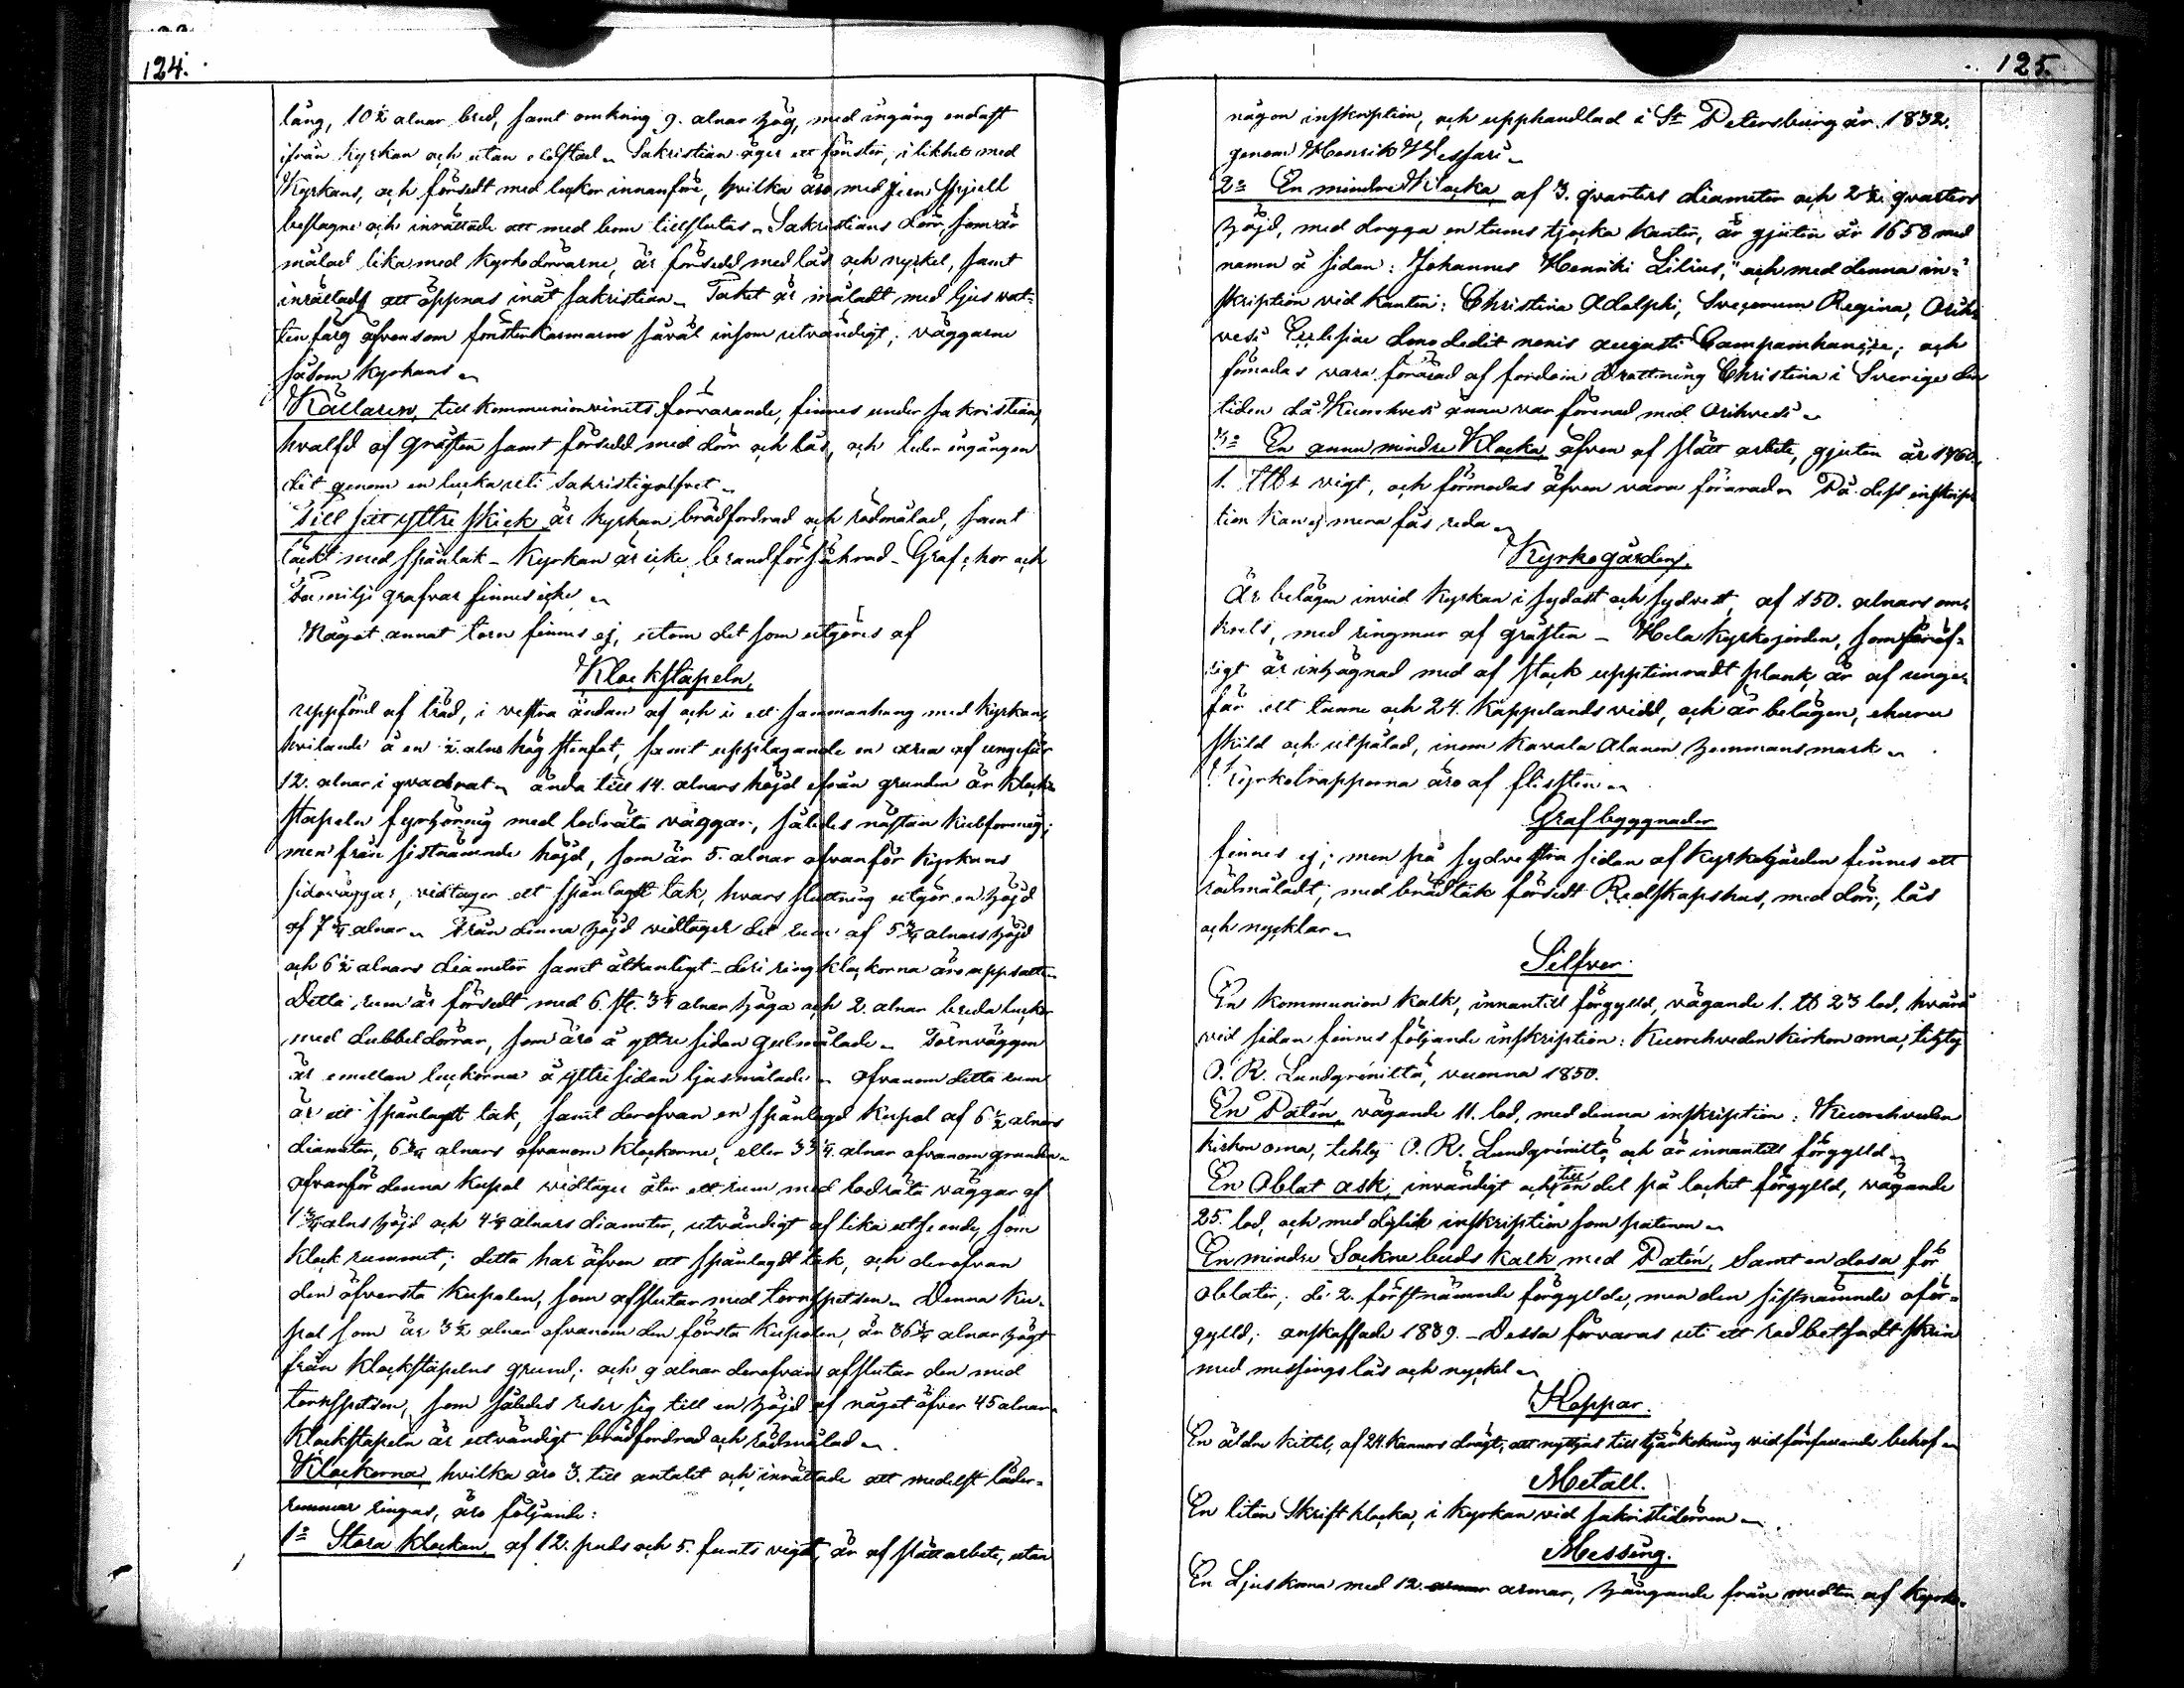 124.
lång, 10½ alnar bred, samt omkring 9. alnar hög, med ingång endast
ifrån Kyrkan och utan eldstad. Sakristian äger ett fönster, i likhet med
Kyrkans, och försedt med luckor innanföre, hvilka äro med jern spjell
beslagne och inrättade att med bom tillslutas. Sakristians dörr, som är
målad lika med Kyrkodörrarne, är försedd med lås och nyckel, samt
inrättad att öppnas inåt sakristian. Taket är måladt med ljus vat-
tenfärg äfvensom fönsterkarmarne såväl in som utvändigt; väggarne
såsom kyrkans.
Källaren, till kommunionvinets förvarande, finnes under sakristian,
hvalfd af gråsten samt försedd med dörr och lås, och leder ingången
dit genom en lucka uti sakristigolfvet.
Till sitt yttre skick är kyrkan brädfordrad och rödmålad, samt
täckt med spåntak – Kyrkan är icke brandförsäkrad – Graf-chor och
Familje grafvar finnes icke.
Något annat torn finnes ej, utom det som utgöres af
Klockstapeln,
uppförd af träd, i vestra ändan af och i ett sammanhang med Kyrkan,
hvilande å en ½ alns hög stenfot, samt upptagande en area af ungefär
12. alnar i qvadrat. Ända till 14. alnars höjd ifrån grunden är klock-
stapeln fyrhörnig med lodräta väggar, således nästan kubformig;
men från sistnämnde höjd, som är 5. alnar ofvanför Kyrkans
sidoväggar, vidtager ett spånlagdt tak, hvars sluttning utgör en höjd
af 7¼ alnar. Från denna höjd vidtager det rum af 5¾ alnars höjd
och 6½ alnars diameter samt åtkantigt – deri ringklockorna äro uppsatte.
Detta rum är försedt med 6. st. 3¼ alnar höga och 2. alnar breda luckor
med dubbeldörrar, som äro å yttre sidan gulmålade. Tornväggen
är emellan luckorna å yttre sidan ljusmålade. Ofvanom detta rum
är ett spånlagdt tak, samt derofvan en spånlagd kupol af 6½ alnars
diameter, 6¾ alnars ofvanom Klockorne, eller 33¼. alnar ofvanom grunden.
Ofvanför denna kupol vidtager åter ett rum med lodräta väggar af
1¾ alns höjd och 4½ alnars diameter, utvändigt af lika utseende, som
klock rummet; detta har äfven ett spånlagdt tak, och derofvan
den öfversta kupolen, som afslutar med tornspetsen. Denna ku-
pol som är 3½ alnar ofvanom den första kupolen, är 36¾ alnar högt
från klockstapelns grund; och 9 alnar derofvan afslutar den med
tornspetsen, som således reser sig till en höjd af något öfver 45 alnar.
Klockstapeln är utvändigt brädfordrad och rödmålad.
Klockorna, hvilka äro 3. till antalet och inrättade att medelst läder-
remmar ringas, äro följande:
1o Stora klockan, af 12. puds och 5. funts vigt, är af slätt arbete, utan
125.
någon inskription, och upphandlad i St Petersburg år 1832.
genom Henrik Wessari.
2o En mindre Klocka, af 3. qvarters diameter och 2½ qvarters
höjd, med drygga en tums tjocka kanter, är gjuten år 1658 med
namn å sidan: Johannes Henriki Lilius," och med denna in-
skription vid kanten: Christina Adolphi, Svecorum Regina, Orih-
vesi Ecclesiæ dono dedit nonis augusti Campamhancce; och
förmodas vara förärad af fordom Drottning Christina i Sverige den
tiden då Kuorehvesi ännu var förenad med Orihvesi.
3o En ännu mindre Klocka, äfven af slätt arbete, gjuten år 1760,
1. ℔ vigt, och förmodas äfven vara förärad. På dess inskrip-
tion kan ej mera fås reda.
Kyrkogården,
Är belägen invid Kyrkan i sydost och sydvest, af 150. alnars om-
krets, med ringmur af gråsten – Hela kyrkojorden, som
är inhägnad med af stock upptimradt plank, är af unge-
fär ett tunne och 24. Kappelands vidd, och är belägen, ehuru
skild och utpålad, inom Kavala Alanen hemmans mark.
Kyrkotrapporna äro af flissten.
Grafbyggnader
finnes ej; men på sydvestra sidan af Kyrkogården finnes ett
rödmåladt, med brädtak försedt Redskapshus, med dörr, lås
och nycklar.
Silfver.
En kommunion kalk, innantill förgylld, vägande 1. ℔ 23 lod, hvarå
vid sidan finnes följande inskription: Kuorehveden kirkon oma, tehty
O. R. Lundgréniltä, vuonna 1850.
En Patén, vägande 11. lod, med denna inskription: Kuorehveden
kirkon oma, tehty O. R. Lundgréniltä, och är innantill förgylld.
En Oblat ask, invändigt och till en del på locket förgylld, vägande
25. lod, och med dylik inskription som patenen.
En mindre Sockne buds kalk med Patén, Samt en dosa för
Oblater; de 2. förstnämnde förgyllde, men den sistnämnde oför-
gylld; anskaffade 1839. – Dessa förvaras uti ett rödbetsadt skrin
med messings lås och nyckel.
Koppar.
En äldre kittel, af 24. kannors drägt, att nyttjas till tjärkokning vid förefallande behof.
Metall.
En liten Skrift klocka, i kyrkan vid sakristidörren.
Messing.
En Ljuskrona med 12. armar armar, hängande från midten af kyrko-